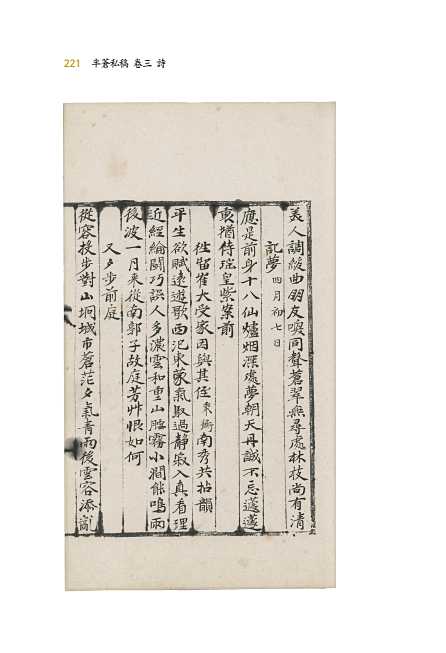 221 半蒼私稿 卷三 詩
美人調緩曲朋友喚同聲蒼翠無尋處林枝尚有清
記夢 四月初七日
應是前身十八仙爐烟深處夢朝天丹誠不忘蘧蘧
裏猶侍瑤皇紫案前
往留崔大受家因與其侄 南秀共拈韻
平生欲賦遠遊歌西汜東蒙氣取過靜家入真看理
近經綸鬪巧誤人多濃雲和重山陰霧小澗能鳴雨
後波一月來從南郭子故庭芳艸恨如何
又夕步前庭
從容投步對山坰城市蒼茫夕氣青雨後雲容添